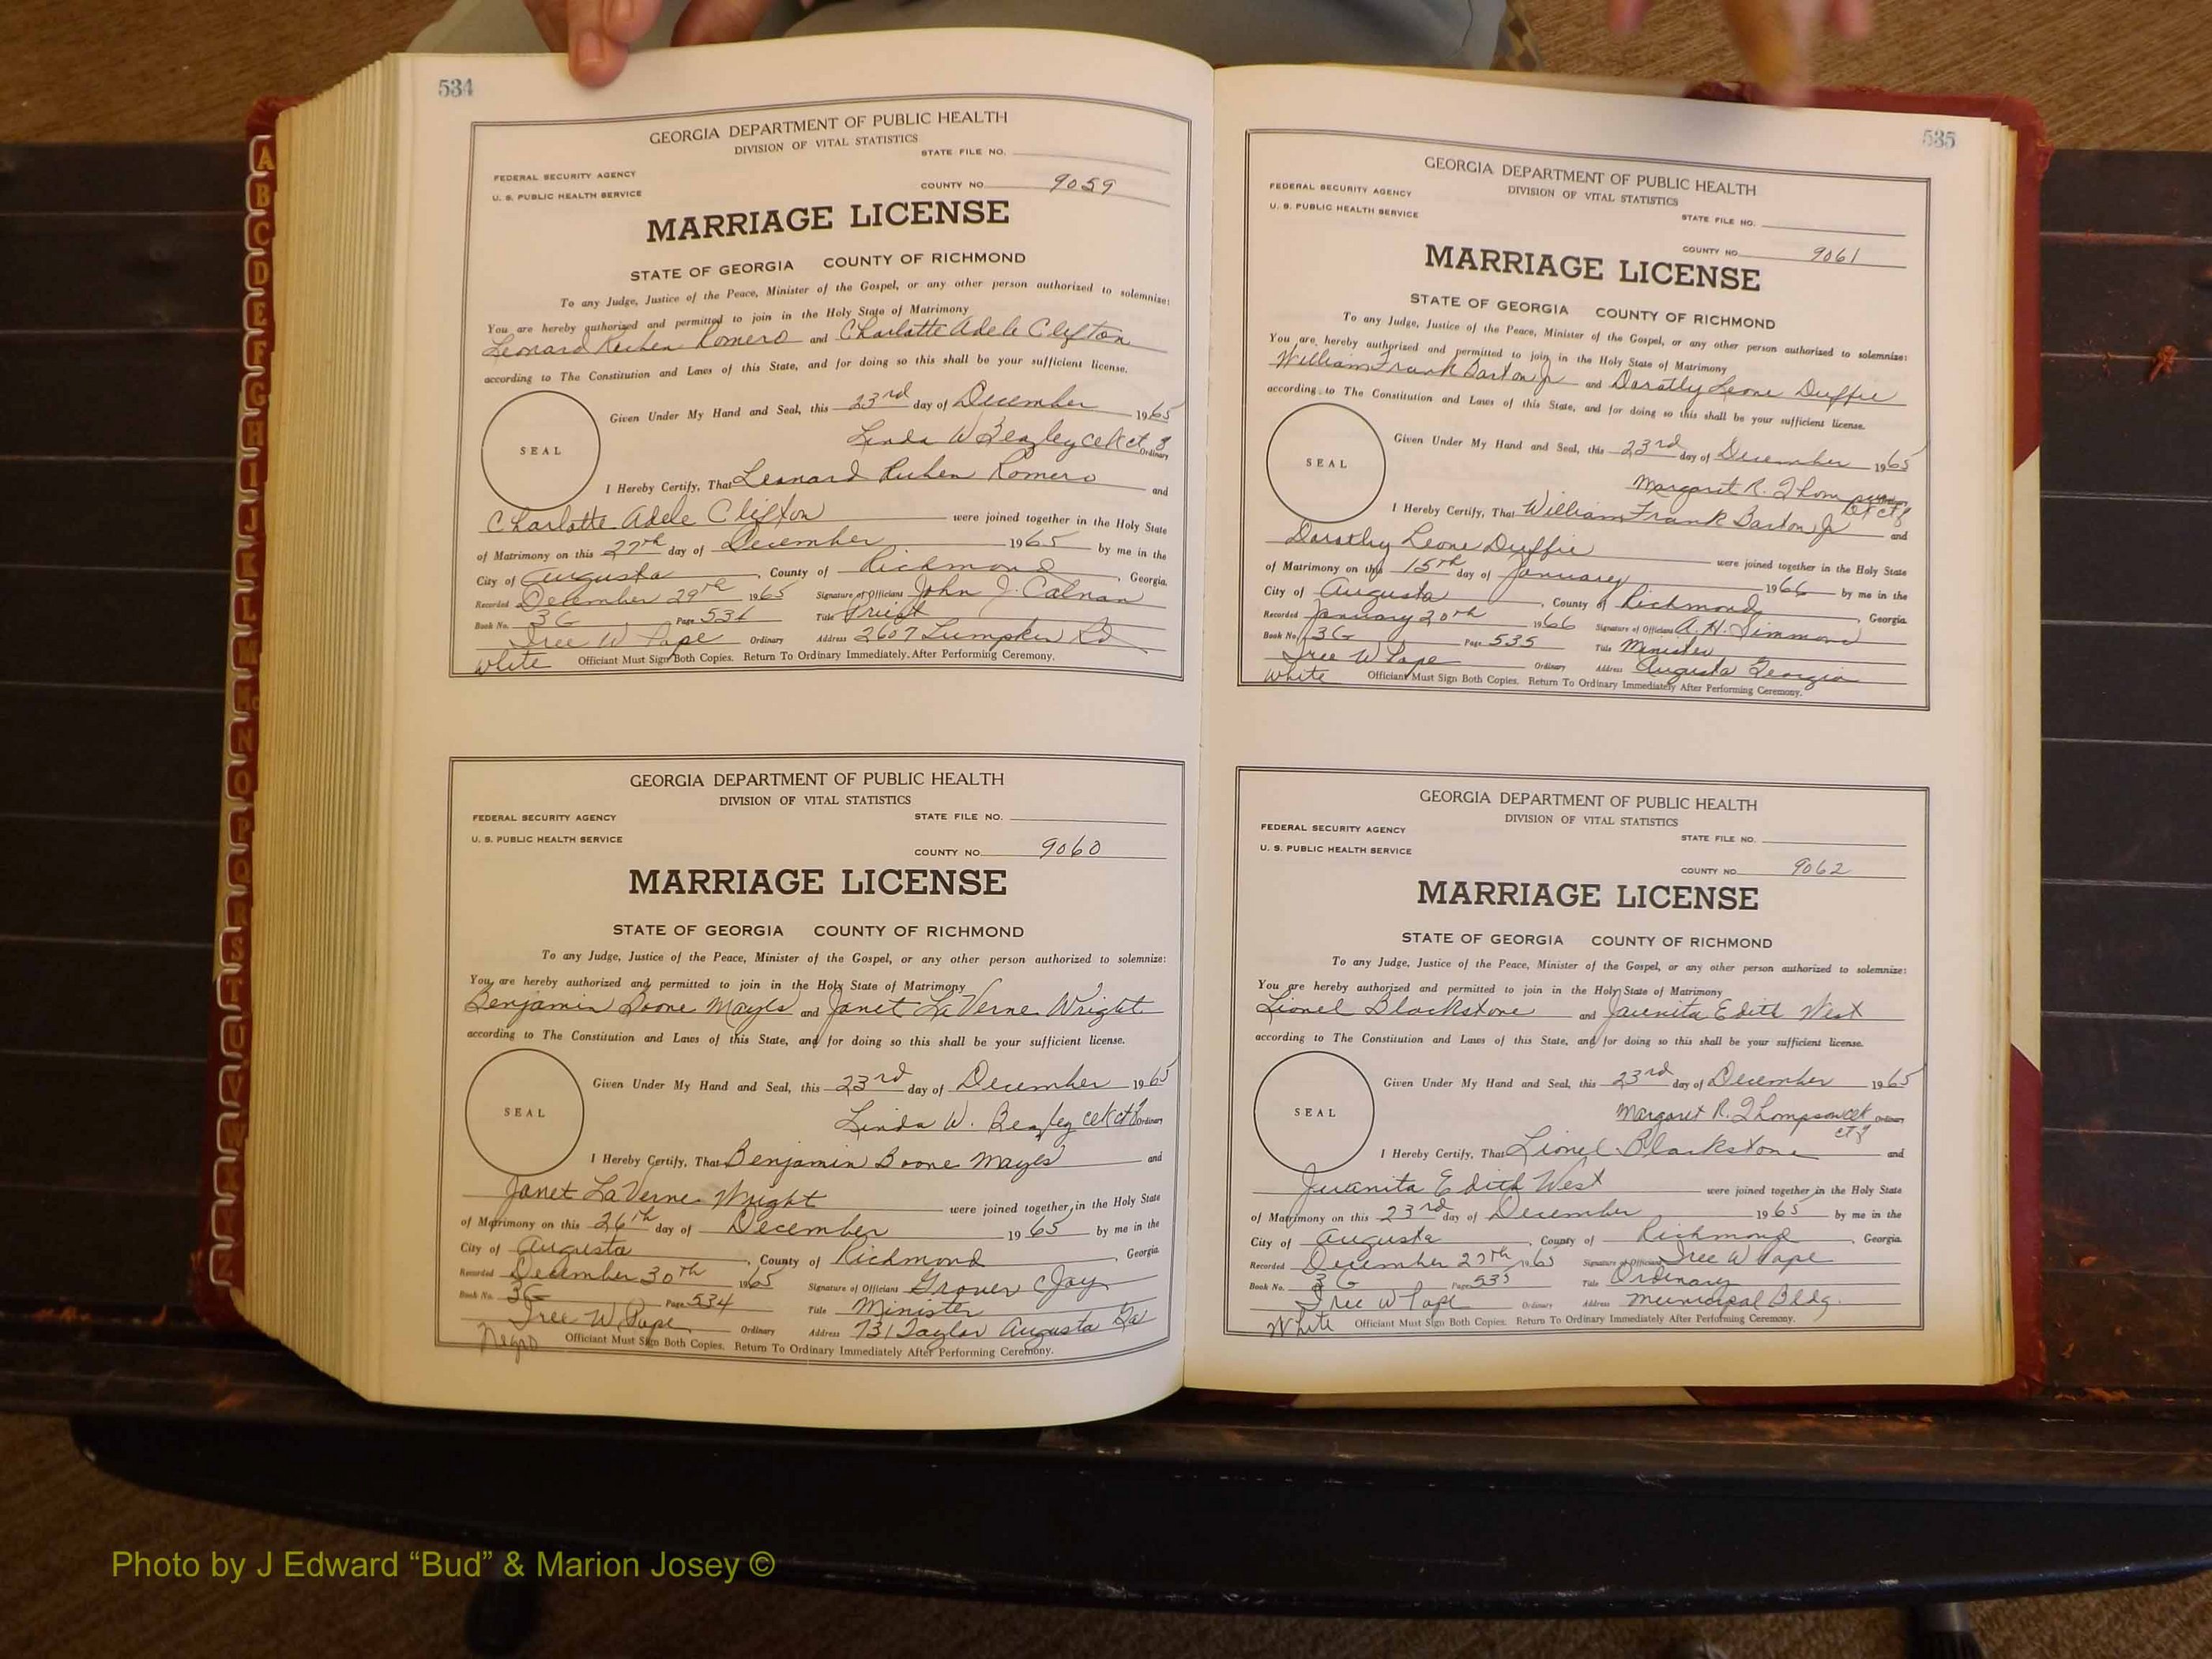 534
GEORGIA DEPARTMENT OF PUBLIC HEALTH
DIVISION OF VITAL STATISTICS
STATE FILE NO.
FEDERAL SECURITY AGENCY
U. S. PUBLIC HEALTH SERVICE
COUNTY NO. 9059
MARRIAGE LICENSE
STATE OF GEORGIA COUNTY OF RICHMOND
To any Judge, Justice of the Peace, Minister of the Gospel, or any other person authorized to solemnize:
You are hereby authorized and permitted to join in the Holy State of Matrimony
Leonard Reuben Romero and Charlotte Adele Clifton
according to The Constitution and Laws of this State, and for doing so this shall be your sufficient license.
Given Under My Hand and Seal, this 23rd day of December 1965
SEAL
Linda W Beazley clk ct Ordinary
I Hereby Certify, That Leonard Reuben Romero and
Charlotte Adele Clifton were joined together in the Holy State
of Matrimony on this 27th day of December 1965 by me in the
City of Augusta, County of Richmond, Georgia.
Recorded December 29th 1965 Signature of Officiant John J. Calnan
Book No. 3G Page 534 Title Priest
Iree W Pope Ordinary Address 2607 Lumpkin Rd
White Officiant Must Sign Both Copies. Return To Ordinary Immediately After Performing Ceremony.
GEORGIA DEPARTMENT OF PUBLIC HEALTH
DIVISION OF VITAL STATISTICS
FEDERAL SECURITY AGENCY STATE FILE NO.
U. S. PUBLIC HEALTH SERVICE
COUNTY NO. 9060
MARRIAGE LICENSE
STATE OF GEORGIA COUNTY OF RICHMOND
To any Judge, Justice of the Peace, Minister of the Gospel, or any other person authorized to solemnize:
You are hereby authorized and permitted to join in the Holy State of Matrimony
Benjamin Boone Mayes and Janet LaVerne Wright
according to The Constitution and Laws of this State, and for doing so this shall be your sufficient license.
Given Under My Hand and Seal, this 23rd day of December 1965
SEAL
Linda W. Beazley clk ct Ordinary
I Hereby Certify, That Benjamin Boone Mayes and
Janet LaVerne Wright were joined together in the Holy State
of Matrimony on this 26th day of December 1965 by me in the
City of Augusta, County of Richmond, Georgia
Recorded December 30th 1965 Signature of Officiant Grover C Jay
Book No. 3G Page 534 Title Minister
Iree W Pope Ordinary Address 731 Taylor Augusta Ga
Negro Officiant Must Sign Both Copies. Return To Ordinary Immediately After Performing Ceremony.
535
GEORGIA DEPARTMENT OF PUBLIC HEALTH
DIVISION OF VITAL STATISTICS
FEDERAL SECURITY AGENCY
U. S. PUBLIC HEALTH SERVICE
STATE FILE NO.
COUNTY NO. 9061
MARRIAGE LICENSE
STATE OF GEORGIA COUNTY OF RICHMOND
To any Judge, Justice of the Peace, Minister of the Gospel, or any other person authorized to solemnize:
You are hereby authorized and permitted to join in the Holy State of Matrimony
William Frank Barton Jr and Dorothy Leone Duffie
according to The Constitution and Laws of this State, and for doing so this shall be your sufficient license.
Given Under My Hand and Seal, this 23rd day of December 1965
SEAL
Margaret R. Thompson
I Hereby Certify, That William Frank Barton Jr and
Dorothy Leone Duffie were joined together in the Holy State
of Matrimony on this 15th day of January 1966 by me in the
City of Augusta, County of Richmond, Georgia.
Recorded January 20th 1966 Signature of Officiant A. H. Simmons
Book No. 3G Page 535 Title Minister
Iree W Pope Ordinary Address Augusta Georgia
White Officiant Must Sign Both Copies. Return To Ordinary Immediately After Performing Ceremony.
GEORGIA DEPARTMENT OF PUBLIC HEALTH
DIVISION OF VITAL STATISTICS
FEDERAL SECURITY AGENCY STATE FILE NO.
U. S. PUBLIC HEALTH SERVICE
COUNTY NO. 9062
MARRIAGE LICENSE
STATE OF GEORGIA COUNTY OF RICHMOND
To any Judge, Justice of the Peace, Minister of the Gospel, or any other person authorized to solemnize:
You are hereby authorized and permitted to join in the Holy State of Matrimony
Lionel Blackstone and Juanita Edith West
according to The Constitution and Laws of this State, and for doing so this shall be your sufficient license.
Given Under My Hand and Seal, this 23rd day of December 1965
SEAL
Margaret R. Thompson clk Ordinary
I Hereby Certify, That Lionel Blackstone and
Juanita Edith West were joined together in the Holy State
of Matrimony on this 23rd day of December 1965 by me in the
City of Augusta, County of Richmond, Georgia.
Recorded December 27th 1965 Signature of Officiant Iree W Pope
Book No. 3G Page 535 Title Ordinary
Iree W Pope Ordinary Address Municipal Bldg.
White Officiant Must Sign Both Copies. Return To Ordinary Immediately After Performing Ceremony.
A
B
C
D
E
F
G
H
I
J
K
L
M
Mc
N
O
P
Q
R
S
T
U
V
W
X
Y
Z
Photo by J Edward “Bud” & Marion Josey ©